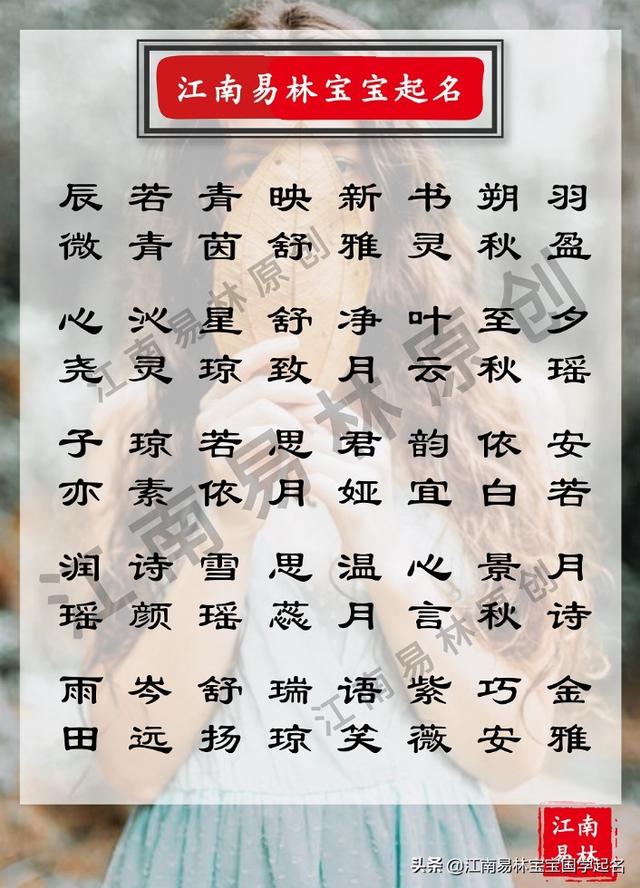 江南易林宝宝起名
辰 若 青 映 新 书 朔 羽
微 青 茵 舒 雅 灵 秋 盈
心 沁 星 舒 净 叶 至 夕
尧 灵 琼 致 月 云 秋 瑶
子 琼 若 思 君 韵 依 安
亦 素 依 月 娅 宜 白 若
润 诗 雪 思 温 心 景 月
瑶 颜 瑶 蕊 月 言 秋 诗
雨 岑 舒 瑞 语 紫 巧 金
田 远 扬 琼 笑 薇 安 雅
江南易林原创
江南易林原创
江南易林原创
江南
易林
头条 @江南易林宝宝国学起名